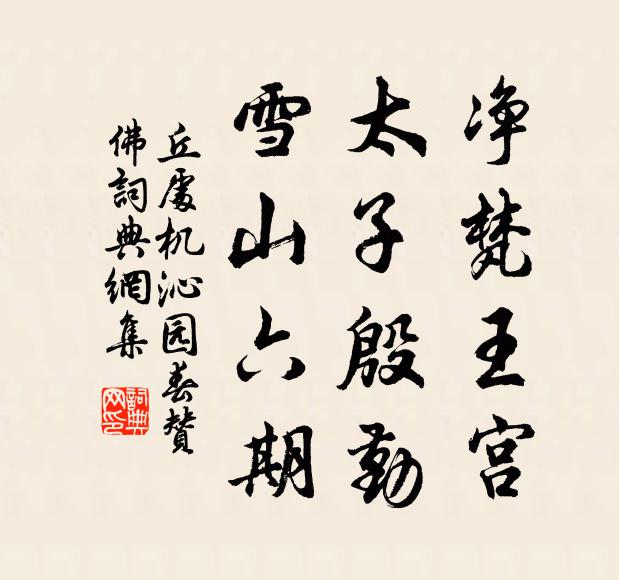 净梵王宫
太子殷勤
雪山六期
丘處机沁园春赞
佛詞典網集
詞典网印